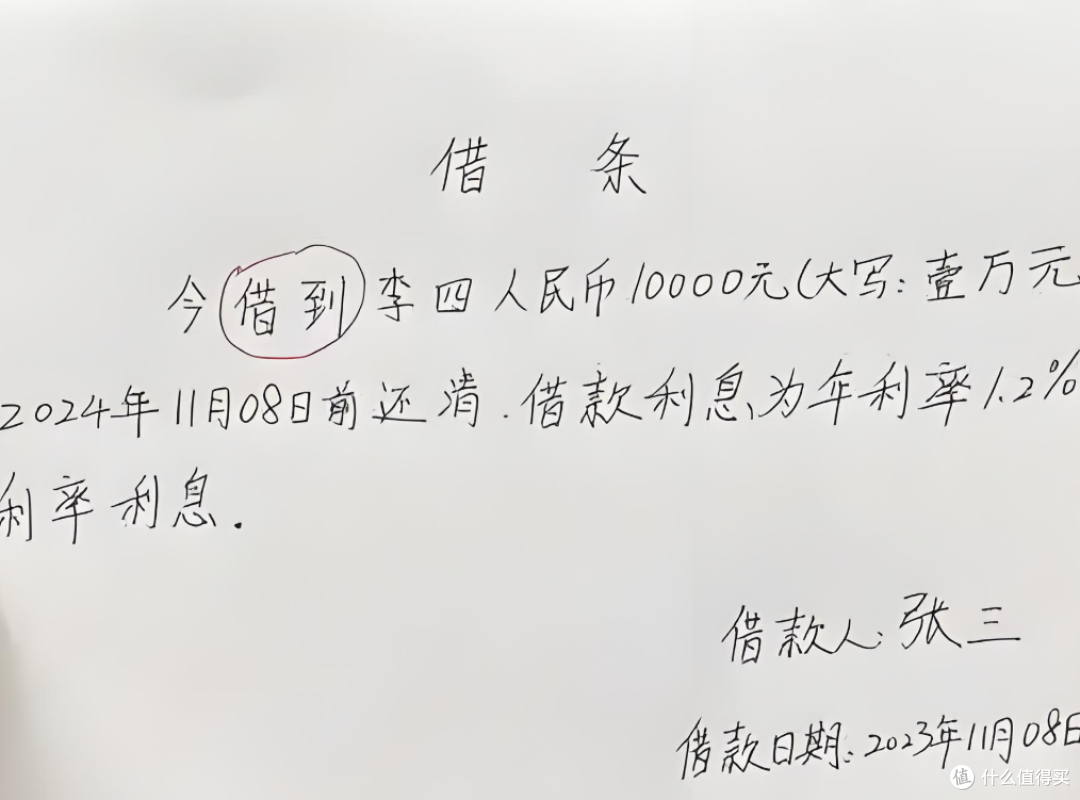 借 条
今借到李四人民币10000元(大写:壹万元
2024年11月08日前还清.借款利息为年利率1.2%
利率利息.
借款人:张三
借款日期:2023年11月08日
值 什么值得买